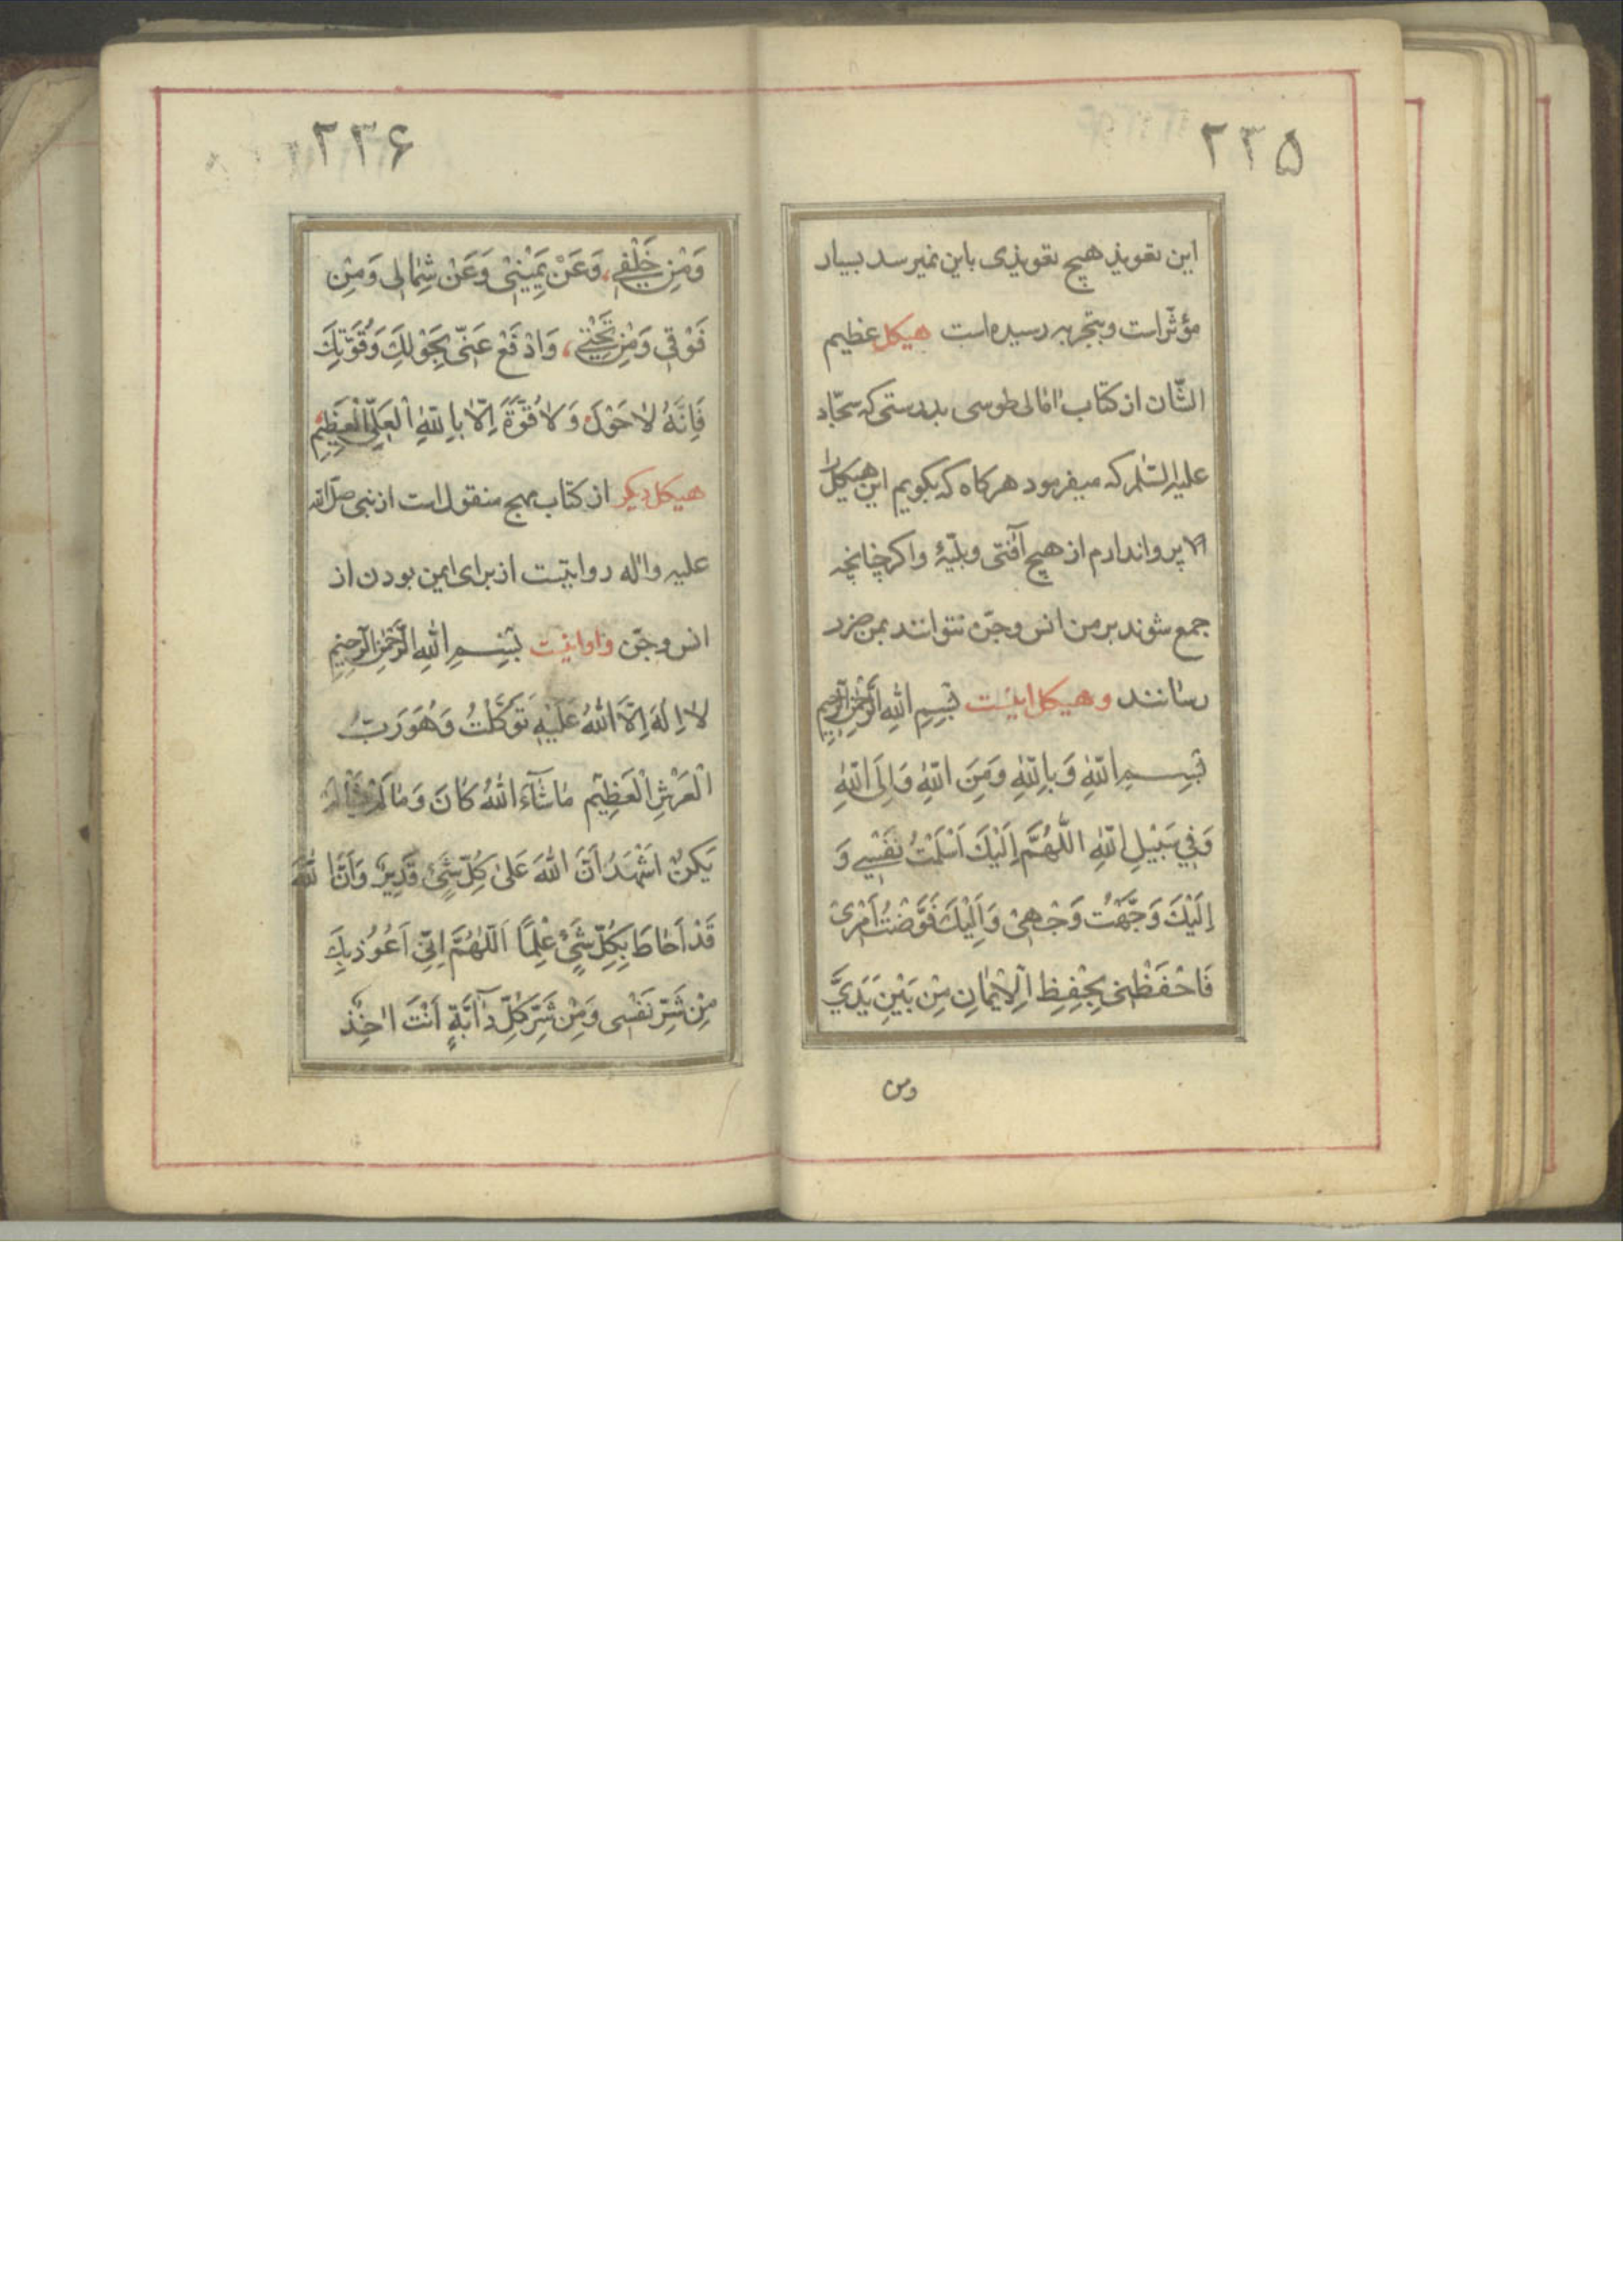 ۲۳۵
این تعویذ هیچ تعویذی باین نمیرسد بسیار
مؤثّر است و بتجربه رسیده است هیکل عظیم
الشّان از کتاب امالی طوسی بدرستی که سجّاد
علیه السّلم که میفرمود هرکاه که بکویم این هیکل را
پروا ندارم از هیچ آفتی و بلیّهٔ واکر چنانچه
جمع شوند بر من انس و جنّ نتوانند بمن ضرر
رسانند و هیکل اینست بِسْمِ اللهِ الرَّحْمٰنِ الرَّحِیمِ
بِسْمِ اللهِ وَبِاللهِ وَمِنَ اللهِ وَاِلَی اللهِ
وَفِي سَبِیْلِ اللهِ اللَّهُمَّ اِلَیْكَ اَسْلَمْتُ نَفْسِي وَ
اِلَیْكَ وَجَّهْتُ وَجْهِیْ وَاِلَیْكَ فَوَّضْتُ اَمْرِیْ
فَاحْفَظْنِی بِحِفْظِ الْاِیْمٰانِ مِنْ بَیْنِ یَدَيَّ
ومن
۲۳۶
وَمِنْ خَلْفِي وَعَنْ یَمِیْنِیْ وَعَنْ شِمٰالِی وَمِنْ
فَوْقِی وَمِنْ تَحْتِي وَادْفَعْ عَنِّی بِحَوْلِكَ وَقُوَّتِكَ
فَاِنَّهُ لاٰ حَوْلَ وَلاٰ قُوَّةَ اِلّاٰ بِاللهِ الْعَلِیِّ الْعَظِیْمِ
هیکل دیکر از کتاب مهج منقول است از نبی صلّی الله
علیه واله روایتست از برای ایمن بودن از
انس و جنّ واو اینست بِسْمِ اللهِ الرَّحْمٰنِ الرَّحِیْمِ
لاٰ اِلٰهَ اِلَّا اللهُ عَلَیْهِ تَوَکَّلْتُ وَهُوَ رَبُّ
الْعَرْشِ الْعَظِیْمِ مٰا شٰآءَ اللهُ کٰانَ وَمٰا لَمْ یَشَأْ لَمْ
یَکُنْ اَشْهَدُ اَنَّ اللهَ عَلیٰ کُلِّ شَیْءٍ قَدِیْرٌ وَاَنَّ اللهَ
قَدْ اَحٰاطَ بِکُلِّ شَیْءٍ عِلْمًا اَللّٰهُمَّ اِنِّي اَعُوْذُ بِكَ
مِنْ شَرِّ نَفْسِی وَمِنْ شَرِّ کُلِّ دٰآبَّةٍ اَنْتَ اٰخِذٌ